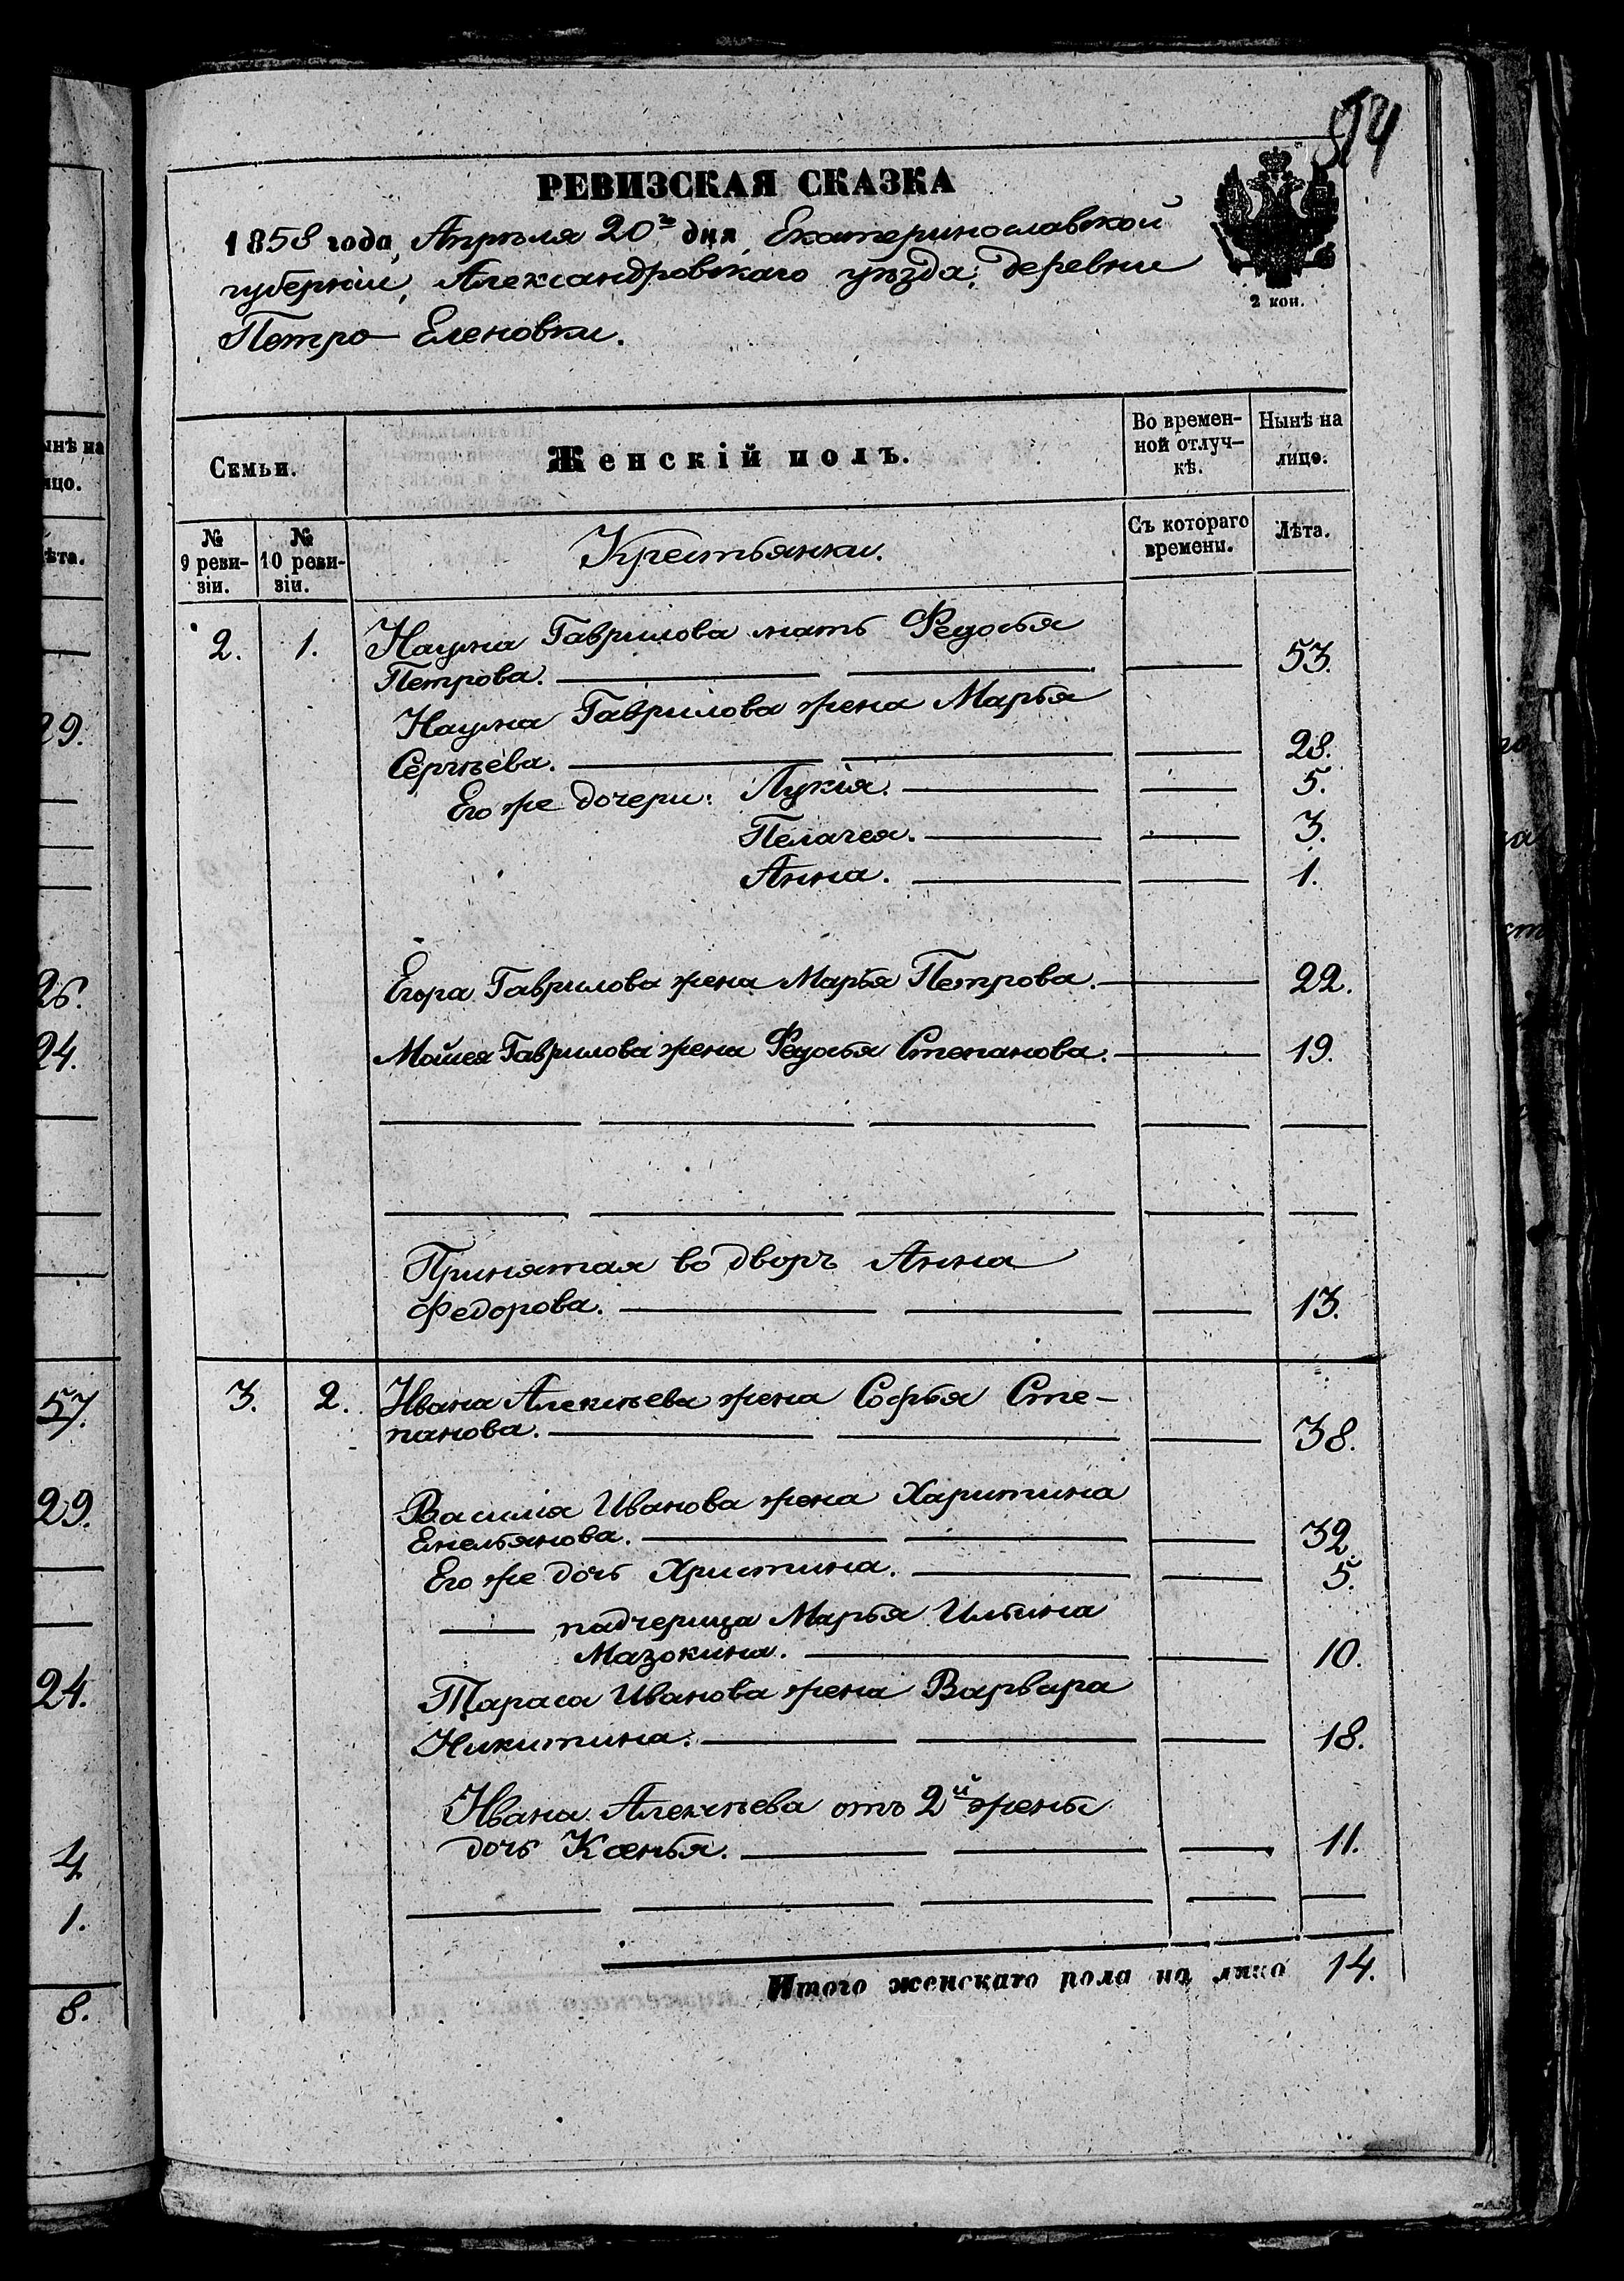 РЕВИЗСКАЯ СКАЗКА
1858 года, Апрѣля 20го дня, Екатеринославской
губерніи, Александровскаго уѣзда, деревни
Петро-Еленовки.
2 коп.
Семьи.
Женскій полъ.
Во времен-
ной отлуч-
кѣ.
Нынѣ на
лицо.
№
9 реви-
зіи.
№
10 реви-
зіи.
Крестьянки.
Съ котораго
времени.
Лѣта.
2. 1. Наума Гаврилова мать Федосья
Петрова. 53.
Наума Гаврилова жена Марья
Сергѣева. 28.
Его же дочери: Лукія. 5.
Пелагея. 3.
Анна. 1.
Егора Гаврилова жена Марья Петрова. 22.
Мойсея Гаврилова жена Федосья Степанова. 19.
Принятая во дворъ Анна
Федорова. 13.
3. 2. Ивана Алексѣева жена Софья Сте-
панова. 38.
Василія Иванова жена Харитина
Емельянова. 32.
Его же дочь Христина. 5.
падчерица Марья Ильина
Мазокина. 10.
Тараса Иванова жена Варвара
Никитина. 18.
Ивана Алексѣева отъ 2й жены
дочь Ксенья. 11.
Итого женскаго пола на лицо 14.
29.
26.
24.
57.
29.
24.
4
1.
8.